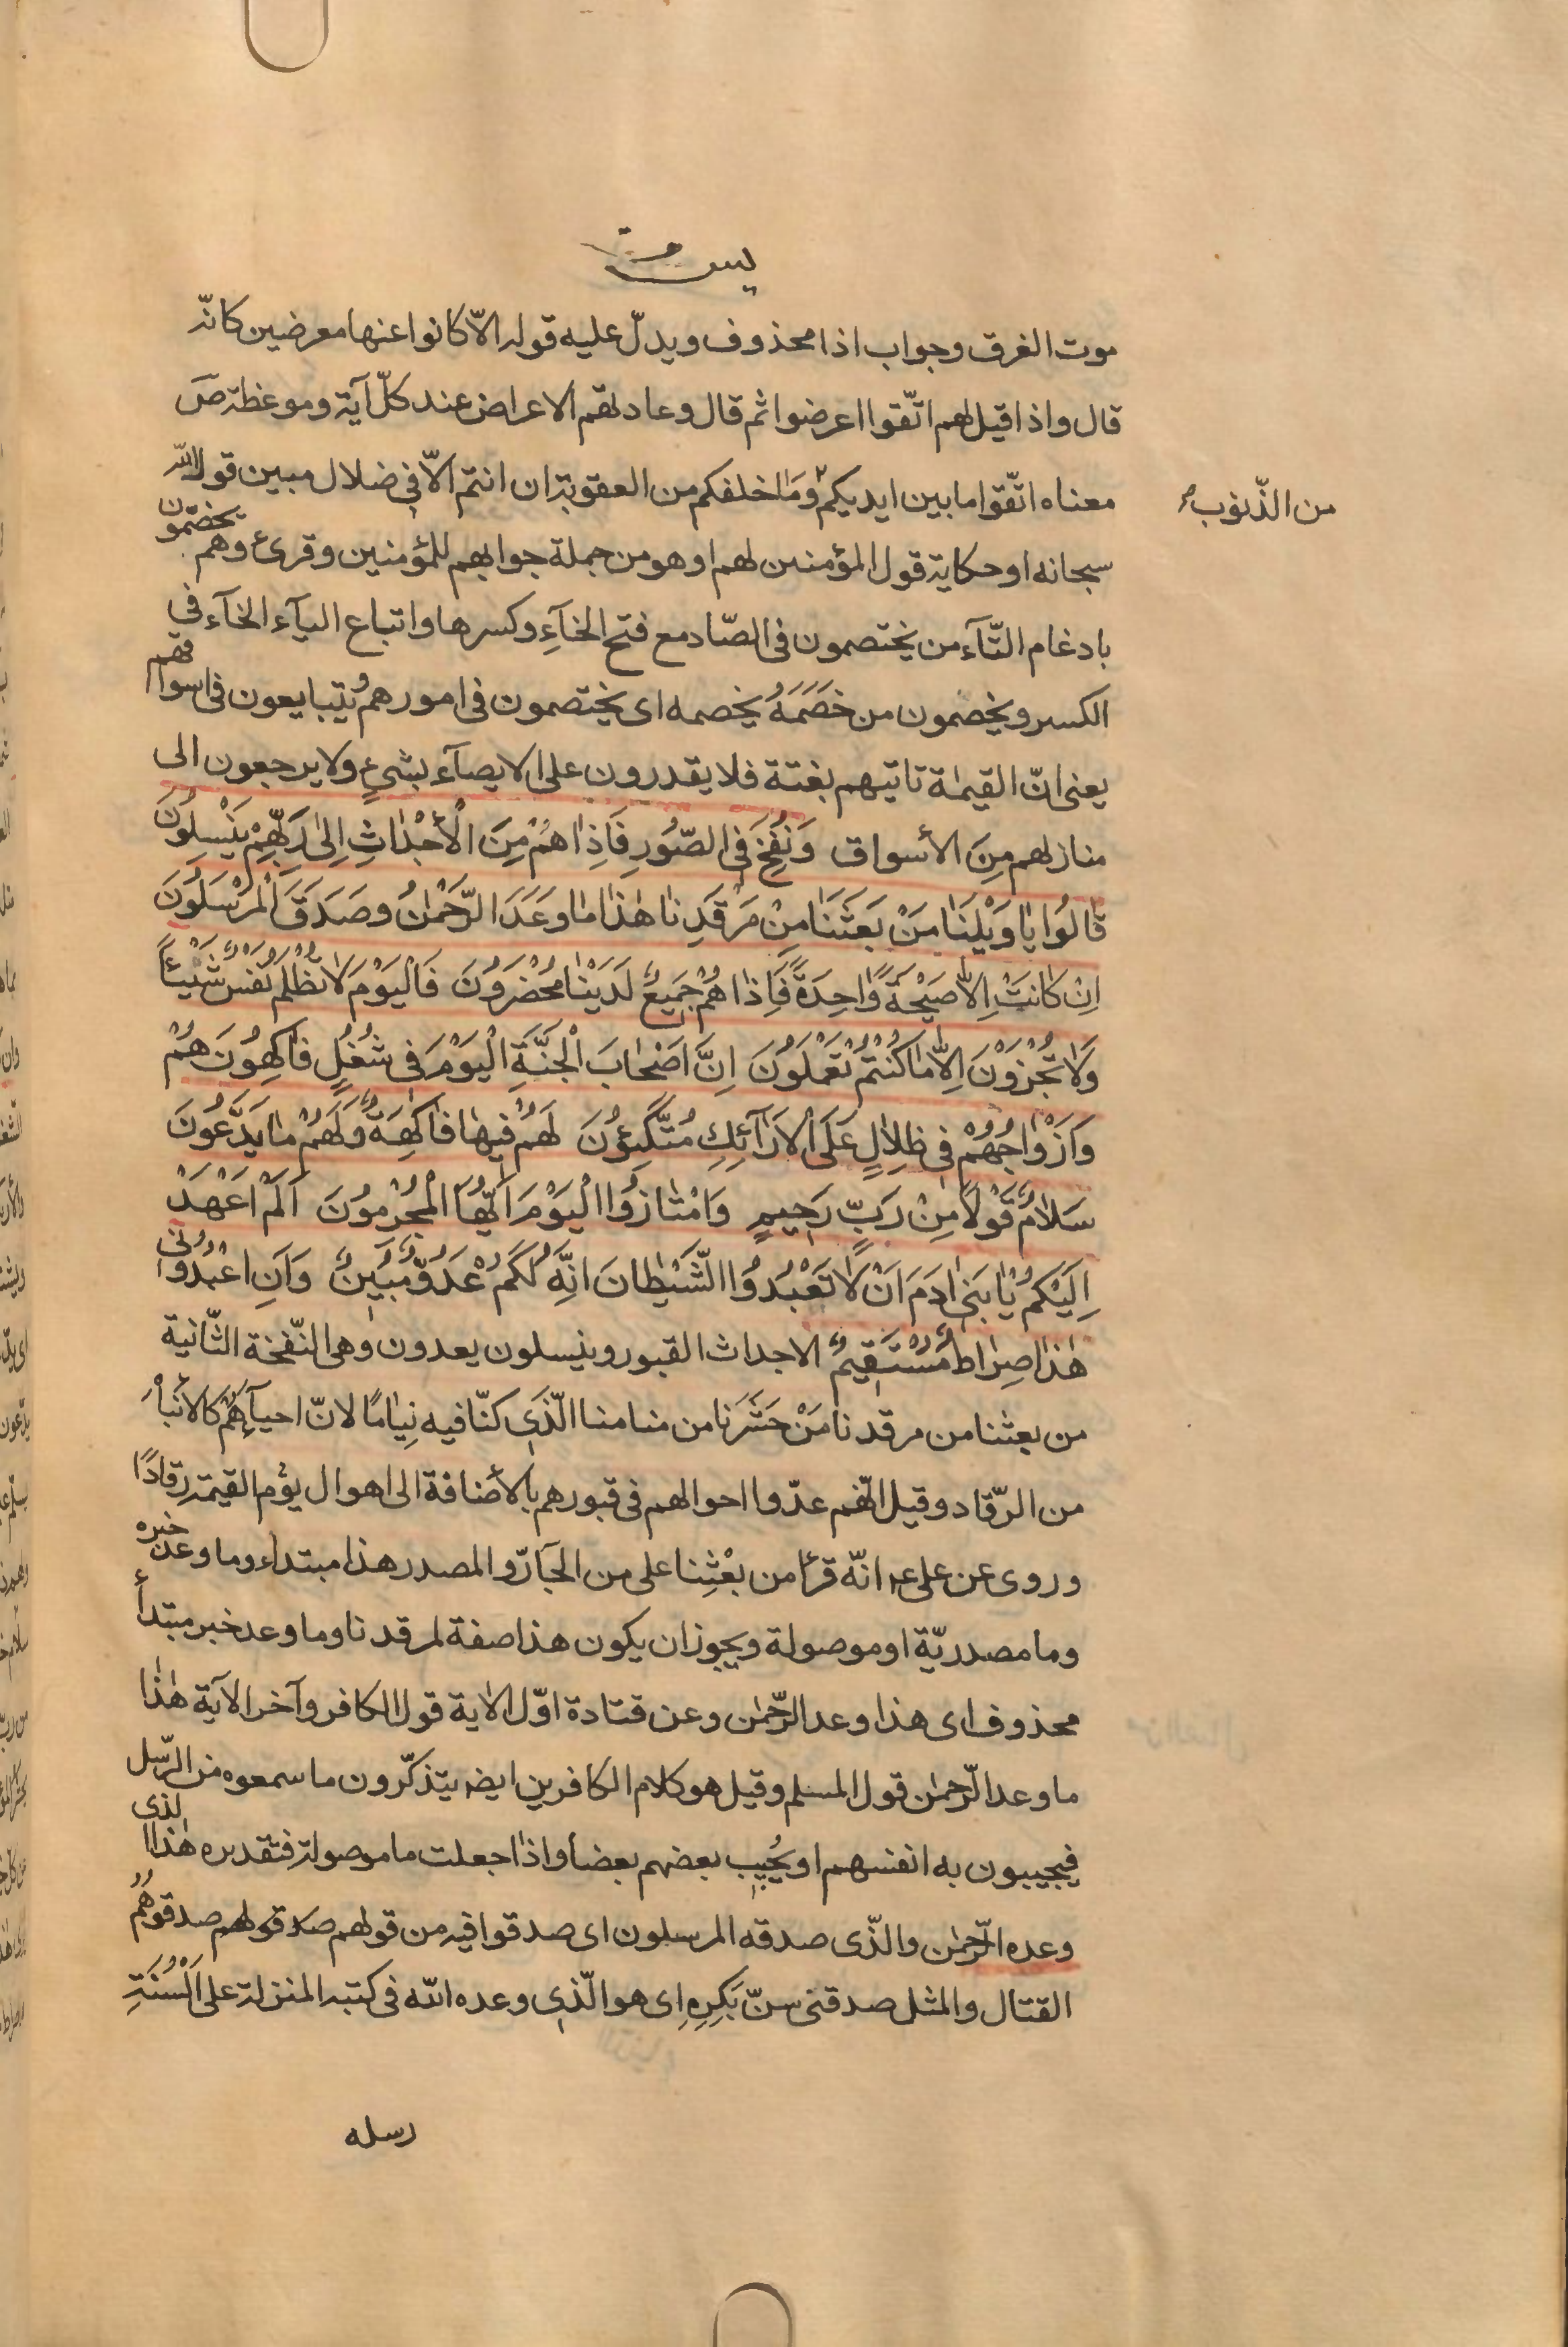 يس
موت الغرق وجواب اذا محذوف ويدلّ عليه قوله الّا كانوا عنها معرضين كانّه
قال واذا قيل لهم اتّقوا اعرضوا ثم قال وعادتهم الاعراض عند كلّ آية وموعظة ص
معناه اتّقوا ما بين ايديكم وما خلفكم من العقوبة ان انتم الّا في ضلال مبين قول الله
من الذّنوب
سبحانه او حكاية قول المؤمنين لهم او هو من جملة جوابهم للمؤمنين وقرئ وهم يخصّمون
بادغام التّآء من يختصمون في الصّاد مع فتح الخآءِ وكسرها واتباع اليآء الخآء في
الكسر ويخصمون من خَصَمَهُ يخصمه اى يختصمون في امورهم ويتبايعون في اسواقهم
يعنى انّ القيمة تاتيهم بغتة فلا يقدرون على الايصآء بشيءٍ ولا يرجعون الى
منازلهم مِنَ الأسواق وَنُفِخَ فِى الصّوُرِ فَاِذاهُمْ مِنَ الْأَجْداثِ اِلىٰ رَبِّهِمْ يَنْسِلُونَ
قالُوا يا وَيْلَنا مَنْ بَعَثَنا مِنْ مَرْقَدِنا هٰذا ما وَعَدَ الرَّحْمٰنُ وصَدَقَ الْمُرْسَلُونَ
اِنْ كانَتْ اِلّا صَيْحَةً واحِدَةً فَاِذا هُمْ جَميعٌ لَدَيْنا مُحْضَرُونَ فَالْيَوْمَ لا تُظْلَمُ نَفْسٌ شَيْئاً
وَلا تُجْزَوْنَ اِلّا ما كُنْتُمْ تَعْمَلُونَ اِنَّ اَصْحابَ الْجَنَّةِ الْيَوْمَ فى شُغُلٍ فاكِهُونَ هُمْ
وَاَزْواجُهُمْ فى ظِلالٍ عَلَى الْاَرآئِكِ مُتَّكِئُونَ لَهُمْ فيها فاكِهَةٌ وَلَهُمْ ما يَدَّعُونَ
سَلامٌ قَوْلاً مِنْ رَبٍّ رَحيمٍ وَامْتازُوا الْيَوْمَ اَيُّهَا الْمُجْرِمُونَ اَلَمْ اَعْهَدْ
اِلَيْكُمْ يا بَنى ادَمَ اَنْ لا تَعْبُدُوا الشَّيْطانَ اِنَّهُ لَكُمْ عَدُوٌّ مُبينٌ وَاَنِ اعْبُدُونى
هٰذا صِراطٌ مُسْتَقيمٌ الاجداث القبور وينسلون يعدون وهى النّفخة الثّانية
من بعثنا من مرقدنا مَنْ حَشَرَنا من منامنا الّذى كنّا فيه نِيامًا لانّ احيآءهُمْ كالأنباه
من الرّقاد وقيل انّهم عدّوا احوالهم فى قبورهم بالأضافة الى اهوال يوم القيمة رقادًا
وروى عن على ع انّه قرأ من بعْثِنا على من الجآرّ والمصدر هذا مبتداء وما وعد خبره
وما مصدريّة او موصولة ويجوز ان يكون هذا صفة لمرقدنا وما وعد خبر مبتدأ
محذوف اى هذا وعد الرّحمٰن وعن قتادة اوّل الاية قول الكافر وآخر الآية هٰذا
ما وعد الرّحمٰن قول المسلم وقيل هو كلام الكافرين ايضه يتذكّرون ما سمعوه من الرّسل
فيجيبون به انفسهم او يُجيب بعضهم بعضا واذا جعلت ما موصولة فتقديره هٰذا الذى
وعده الرّحمٰن والّذى صدقه المرسلون اى صدقوا فيه من قولهم صدقولهم صدقوهُمُ
القتال والمثل صدقنى سنّ بَكرِهِ اى هو الّذى وعده الله فى كتبه المنزلة على اَلْسُنَةِ
رسله